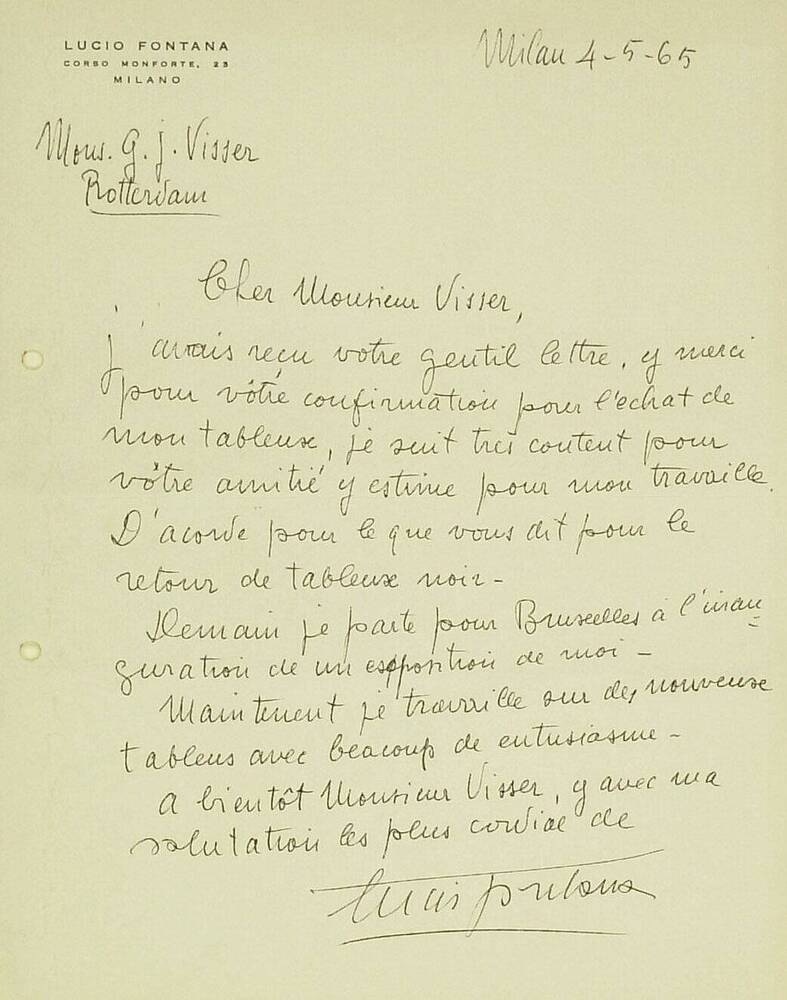 LUCIO FONTANA
CORSO MONFORTE, 23
MILANO
Milan 4-5-65
Mons. G. J. Visser
Rotterdam
Cher Monsieur Visser,
j'avais reçu votre gentil lettre, y merci
pour vôtre confirmation pour l'echat de
mon tableux, je suit tres content pour
vôtre amitié y estime pour mon travaille.
D'acorde pour le que vous dit pour le
retour de tableux noir -
Demain je parte pour Bruxelles à l'inau-
guration de un espposition de moi -
Maintenent je travaille sur des nouveuse
tableus avec beacoup de entusiasme -
a bientôt Monsieur Visser, y avec ma
salutation les plus cordiae de
Lucio Fontana